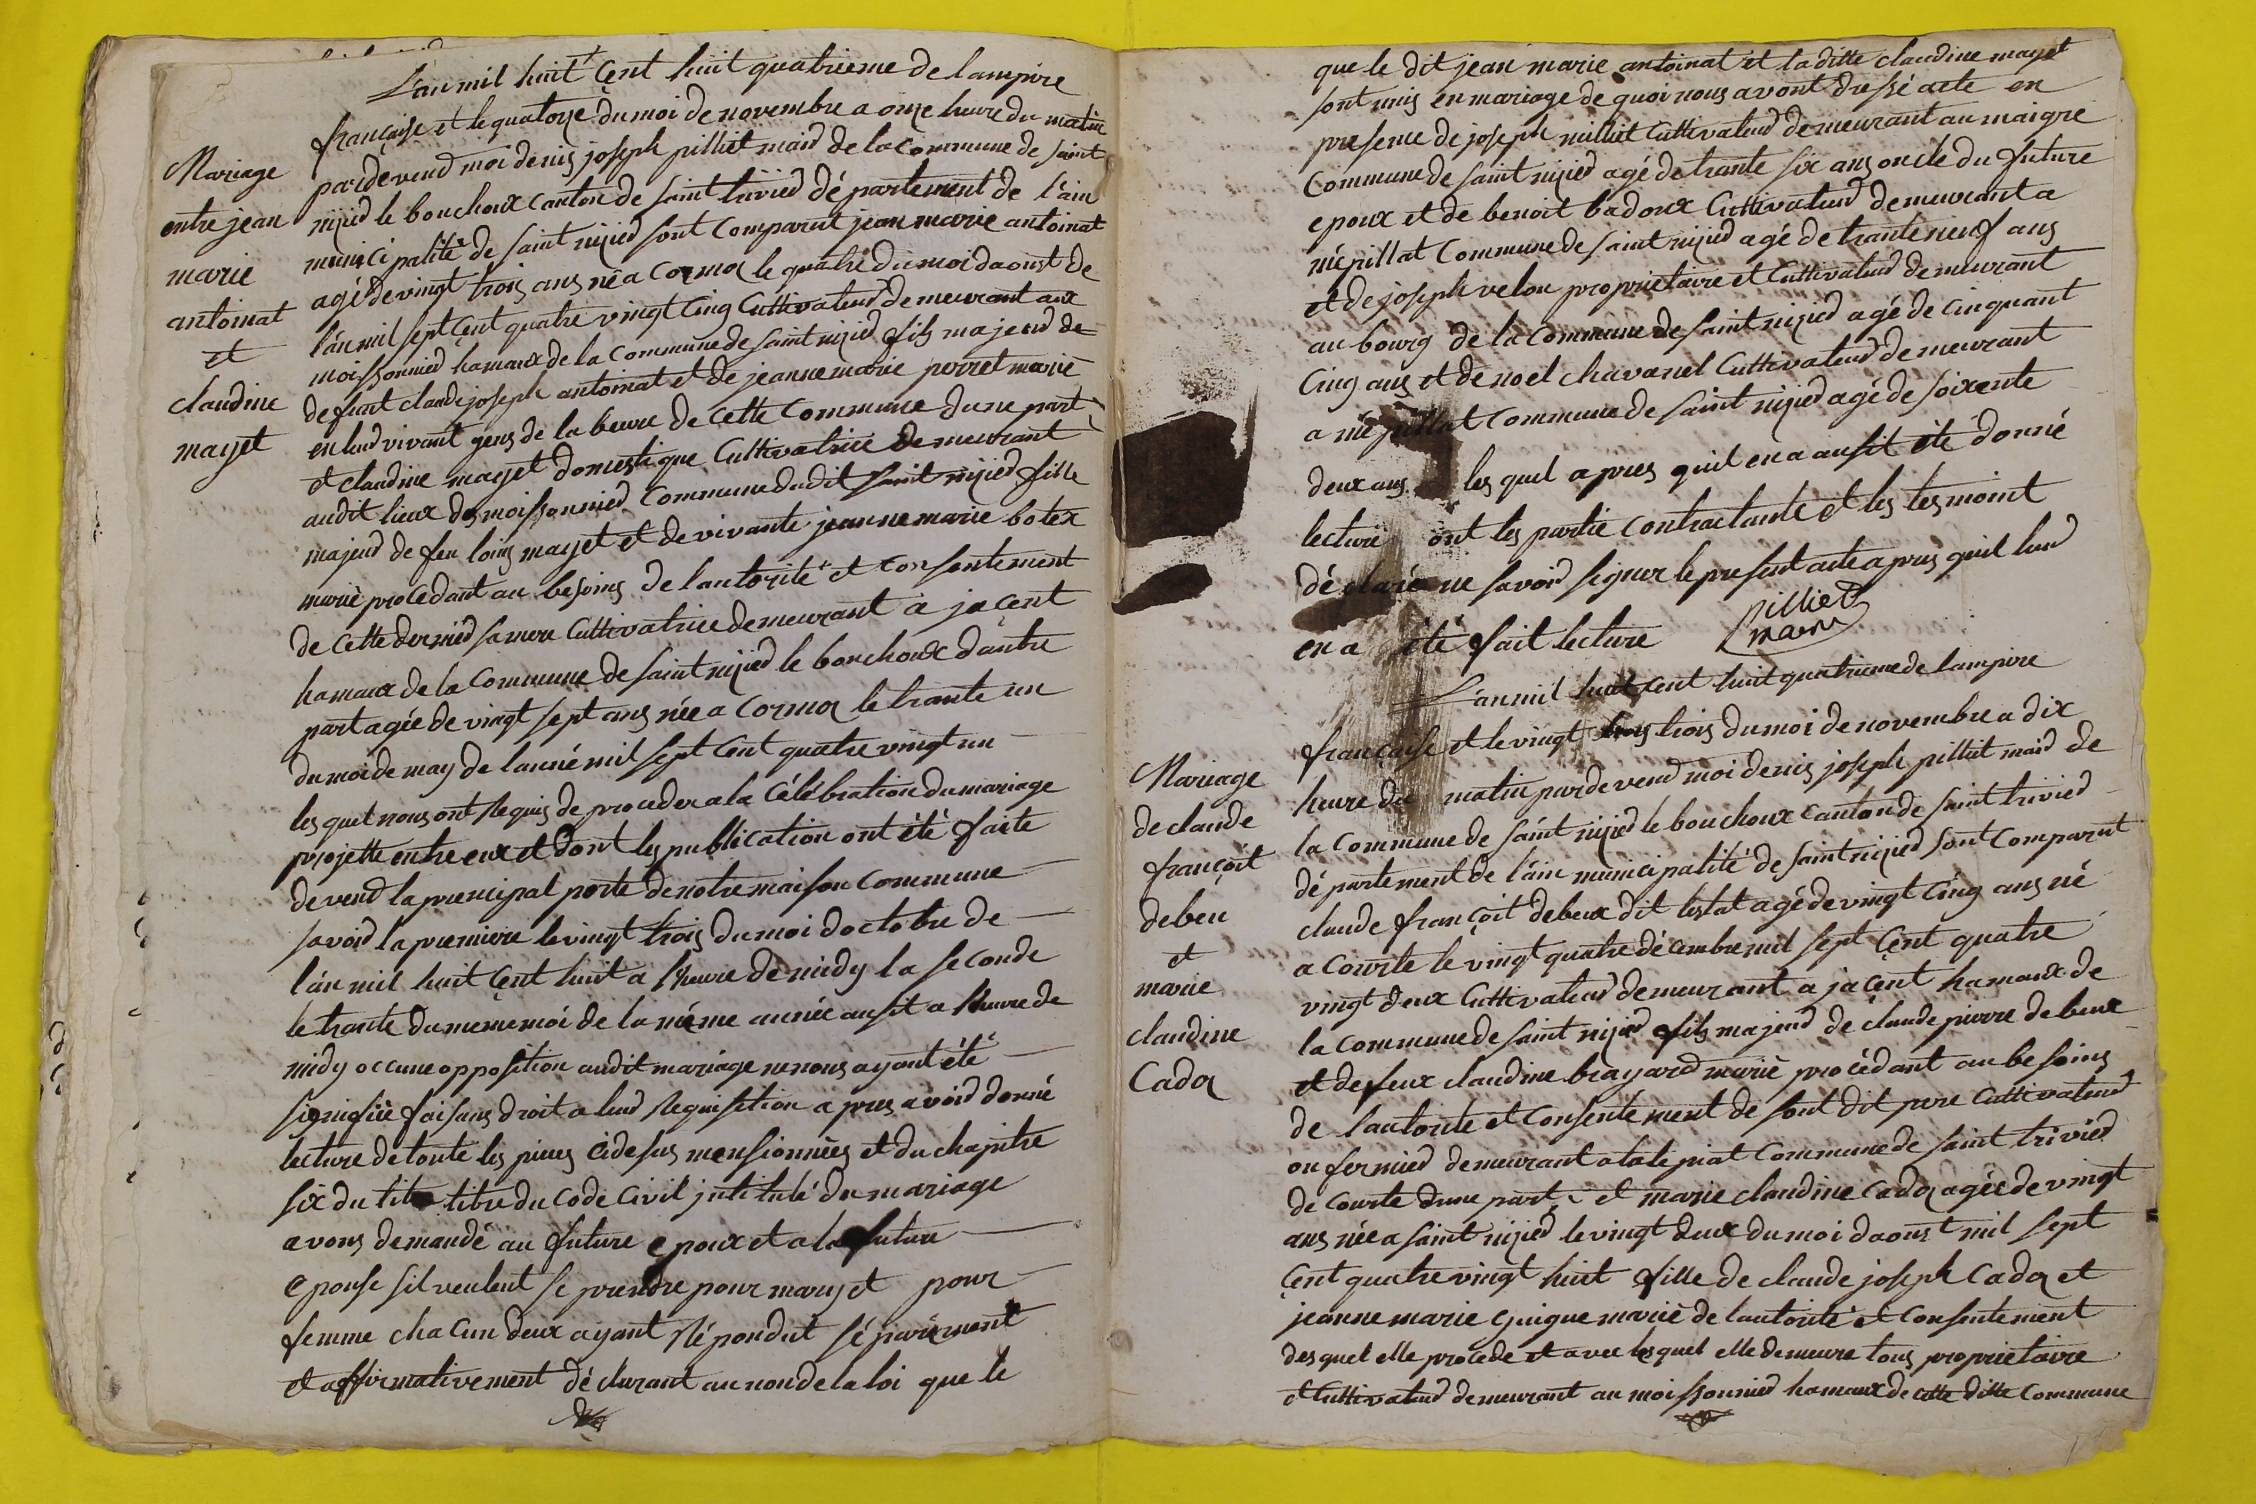 L'an mil huit cent huit quatrieme de lampire
française et le quatorze du moi de novembre a onze heure du matin
pardevend moi denis joseph pilliet maid de la commune de saint
nizied le bouchoux canton de saint trivied département de l'ain
municipalité de saint nizied sont comparut jean marie antoinat
agé de vingt trois ans né a cormoz le quatre du moi daoust de
l'an mil sept cent quatre vingt cinq cultivateud demeurant aux
moissonnied hamaux de la commune de saint nizied fils majeud de
defunt claude joseph antoinat et de jeanne marie perret marié
en leud vivant gens de la beuvre de cette commune dune part
et claudine mayet domestique cultivatrice demeurant
audit lieux des moissonnied commune dudit saint nizied fille
majeud de feu loins mayet et de vivante jeanne marie botex
marié procedant au besoins de lautorité et consentement
de cette dernied sa mere cultivatrice demeurant a jacent
hamaux de la commune de saint nizied le bouchoux dautre
part agée de vingt sept ans née a cormoz le trante un
du moi de may de lanné mil sept cent quatre vingt un
les quel nous ont requis de proceder a la célébration du mariage
projette entre eux et dont les publication ont été faite
devend la prencipal porte de notre maison commune
savoid la premiere le vingt trois du moi doctobre de
l'an mil huit cent huit a l'heure de midy la seconde
le trante du meme moi de la méme année ausit a l'heure de
midy occune opposition audit mariage ne nous ayant été
signifiée faisans droit a leud requisition apres avoid donné
lecture de toute les pieces cidesus mensionnées et du chapitre
six du titre du code civil jntitulé du mariage
avons demandé au future epoux et a la future
epouse sil veulent se prendre pour mary et pour
femme chacun deux ayant répondut séparément
et affirmativement déclarant au non de la loi que le
Mariage
entre jean
marie
antoinat
et
claudine
mayet
que le dit jean marie antoinat et la ditte claudine mayet
sont unis en mariage de quoi nous avont dressé acte en
presence de joseph millet cultivateud demeurant au maigre
commune de saint nizied agé de trante six ans oncle du future
epoux et de benoit badoux cultivateud demeurant a
mépillat commune de saint nizied agé de trante neuf ans
et de joseph velon proprietaire et cultivateud demeurant
au bourg de la commune de saint nizied agé de cinquant
cinq ans et de noel chavanel cultivateud demeurant
a mépillat commune de saint nizied agé de soixente
deux ans les quel apres quil en a ausit été donné
lecture ont les partie contractante et les tesmoint
déclaré ne savoid signer le present acte apres quil leud
en a été fait lecture pilliet
maire
L'an mil huit cent huit quatrieme de lampire
française et le vingt trois du moi de novembre a dix
heure du matin pardevend moi denis joseph pilliet maid de
la commune de saint nizied le bouchoux canton de saint trivied
département de l'ain municipalité de saint nizied sont comparut
claude françoit debeux dit lestat agé de vingt cinq ans né
a courte le vingt quatre décembre mil sept cent quatre
vingt deux cultivateud demeurant a jacent hamaux de
la commune de saint nizied fils majeud de claude pierre debeux
et de feux claudine brayard marié procédant au besoins
de lautorite et consentement de sont dit pere cultivateud
ou fermied demeurant a commune de saint trivied
de courte dune part et marie claudine cadoz agée de vingt
ans née a saint nizied le vingt deux du moi daoust mil sept
cent quatre vingt huit fille de claude joseph cadoz et
jeanne marie guigue marié de lautorité et consentement
des quel elle procede et avec les quel elle demeure tous proprietaire
et cultivateud demeurant au moissonnied hamaux de cette ditte commune
Mariage
de claude
françoit
debeu
et
marie
claudine
Cadoz